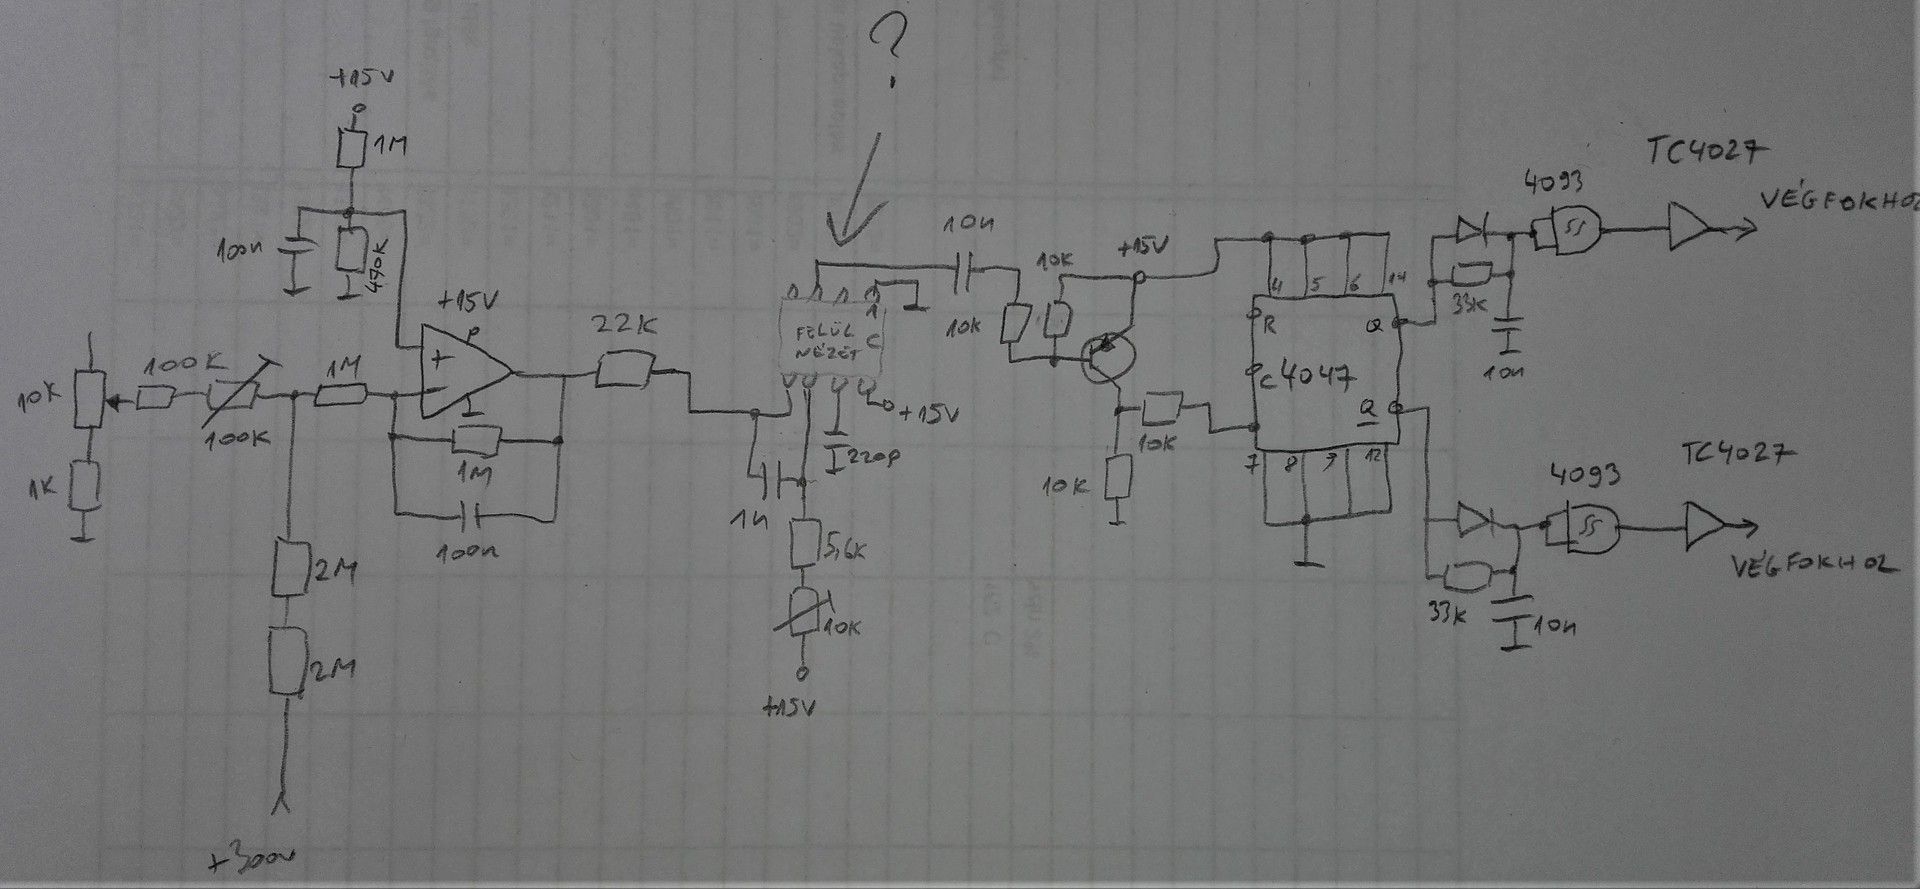 ?
+15V
1M
100n
470K
+15V
+
-
22K
10K
100K
100K
1M
1K
1M
100n
2M
2M
+300V
FELÜL
NÉZET
1
C
10n
10K
10K
+15V
+15V
220p
1n
5,6K
10K
+15V
10K
10K
4 5 6 14
R Q
C4047
Q
7 8 9 12
33K
10n
4093
TC4027
VÉGFOKHOZ
33K
10n
4093
TC4027
VÉGFOKHOZ